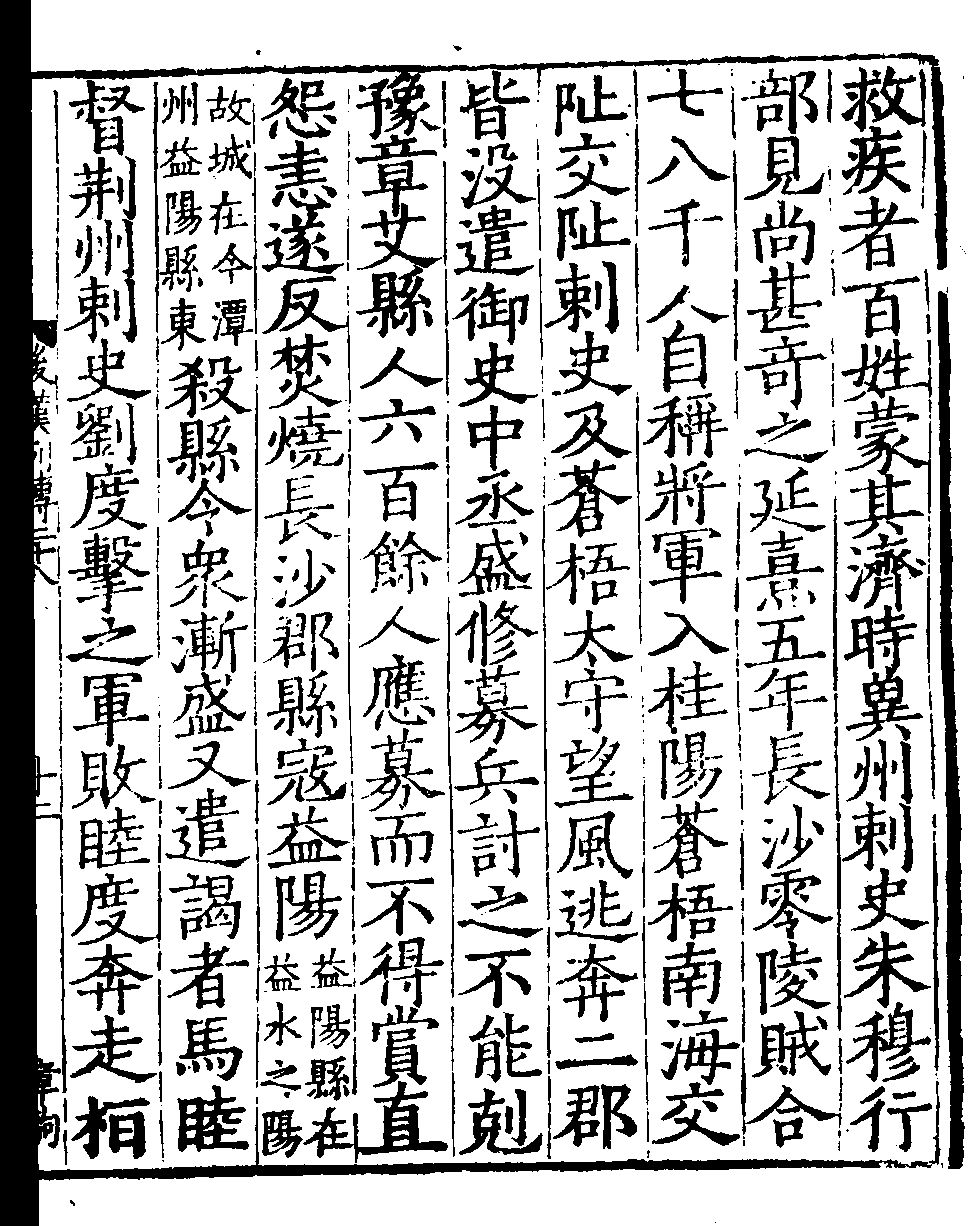 救疾者百姓蒙其濟時兾州刺史朱穆行
部見尚甚竒之延熹五年長沙零陵賊合
七八千人自稱將軍入桂陽蒼梧南海交
阯交阯刺史及蒼梧太守望風逃奔二郡
皆没遣御史中丞盛修募兵討之不能剋
豫章艾縣人六百餘人應募而不得賞直
怨恚遂反焚燒長沙郡縣寇益陽益陽縣在益水之陽
故城在今潭州益陽縣東殺縣令衆漸盛又遣謁者馬睦
督荆州刺史劉度擊之軍敗睦度奔走栢
後漢列傳二十八
十二